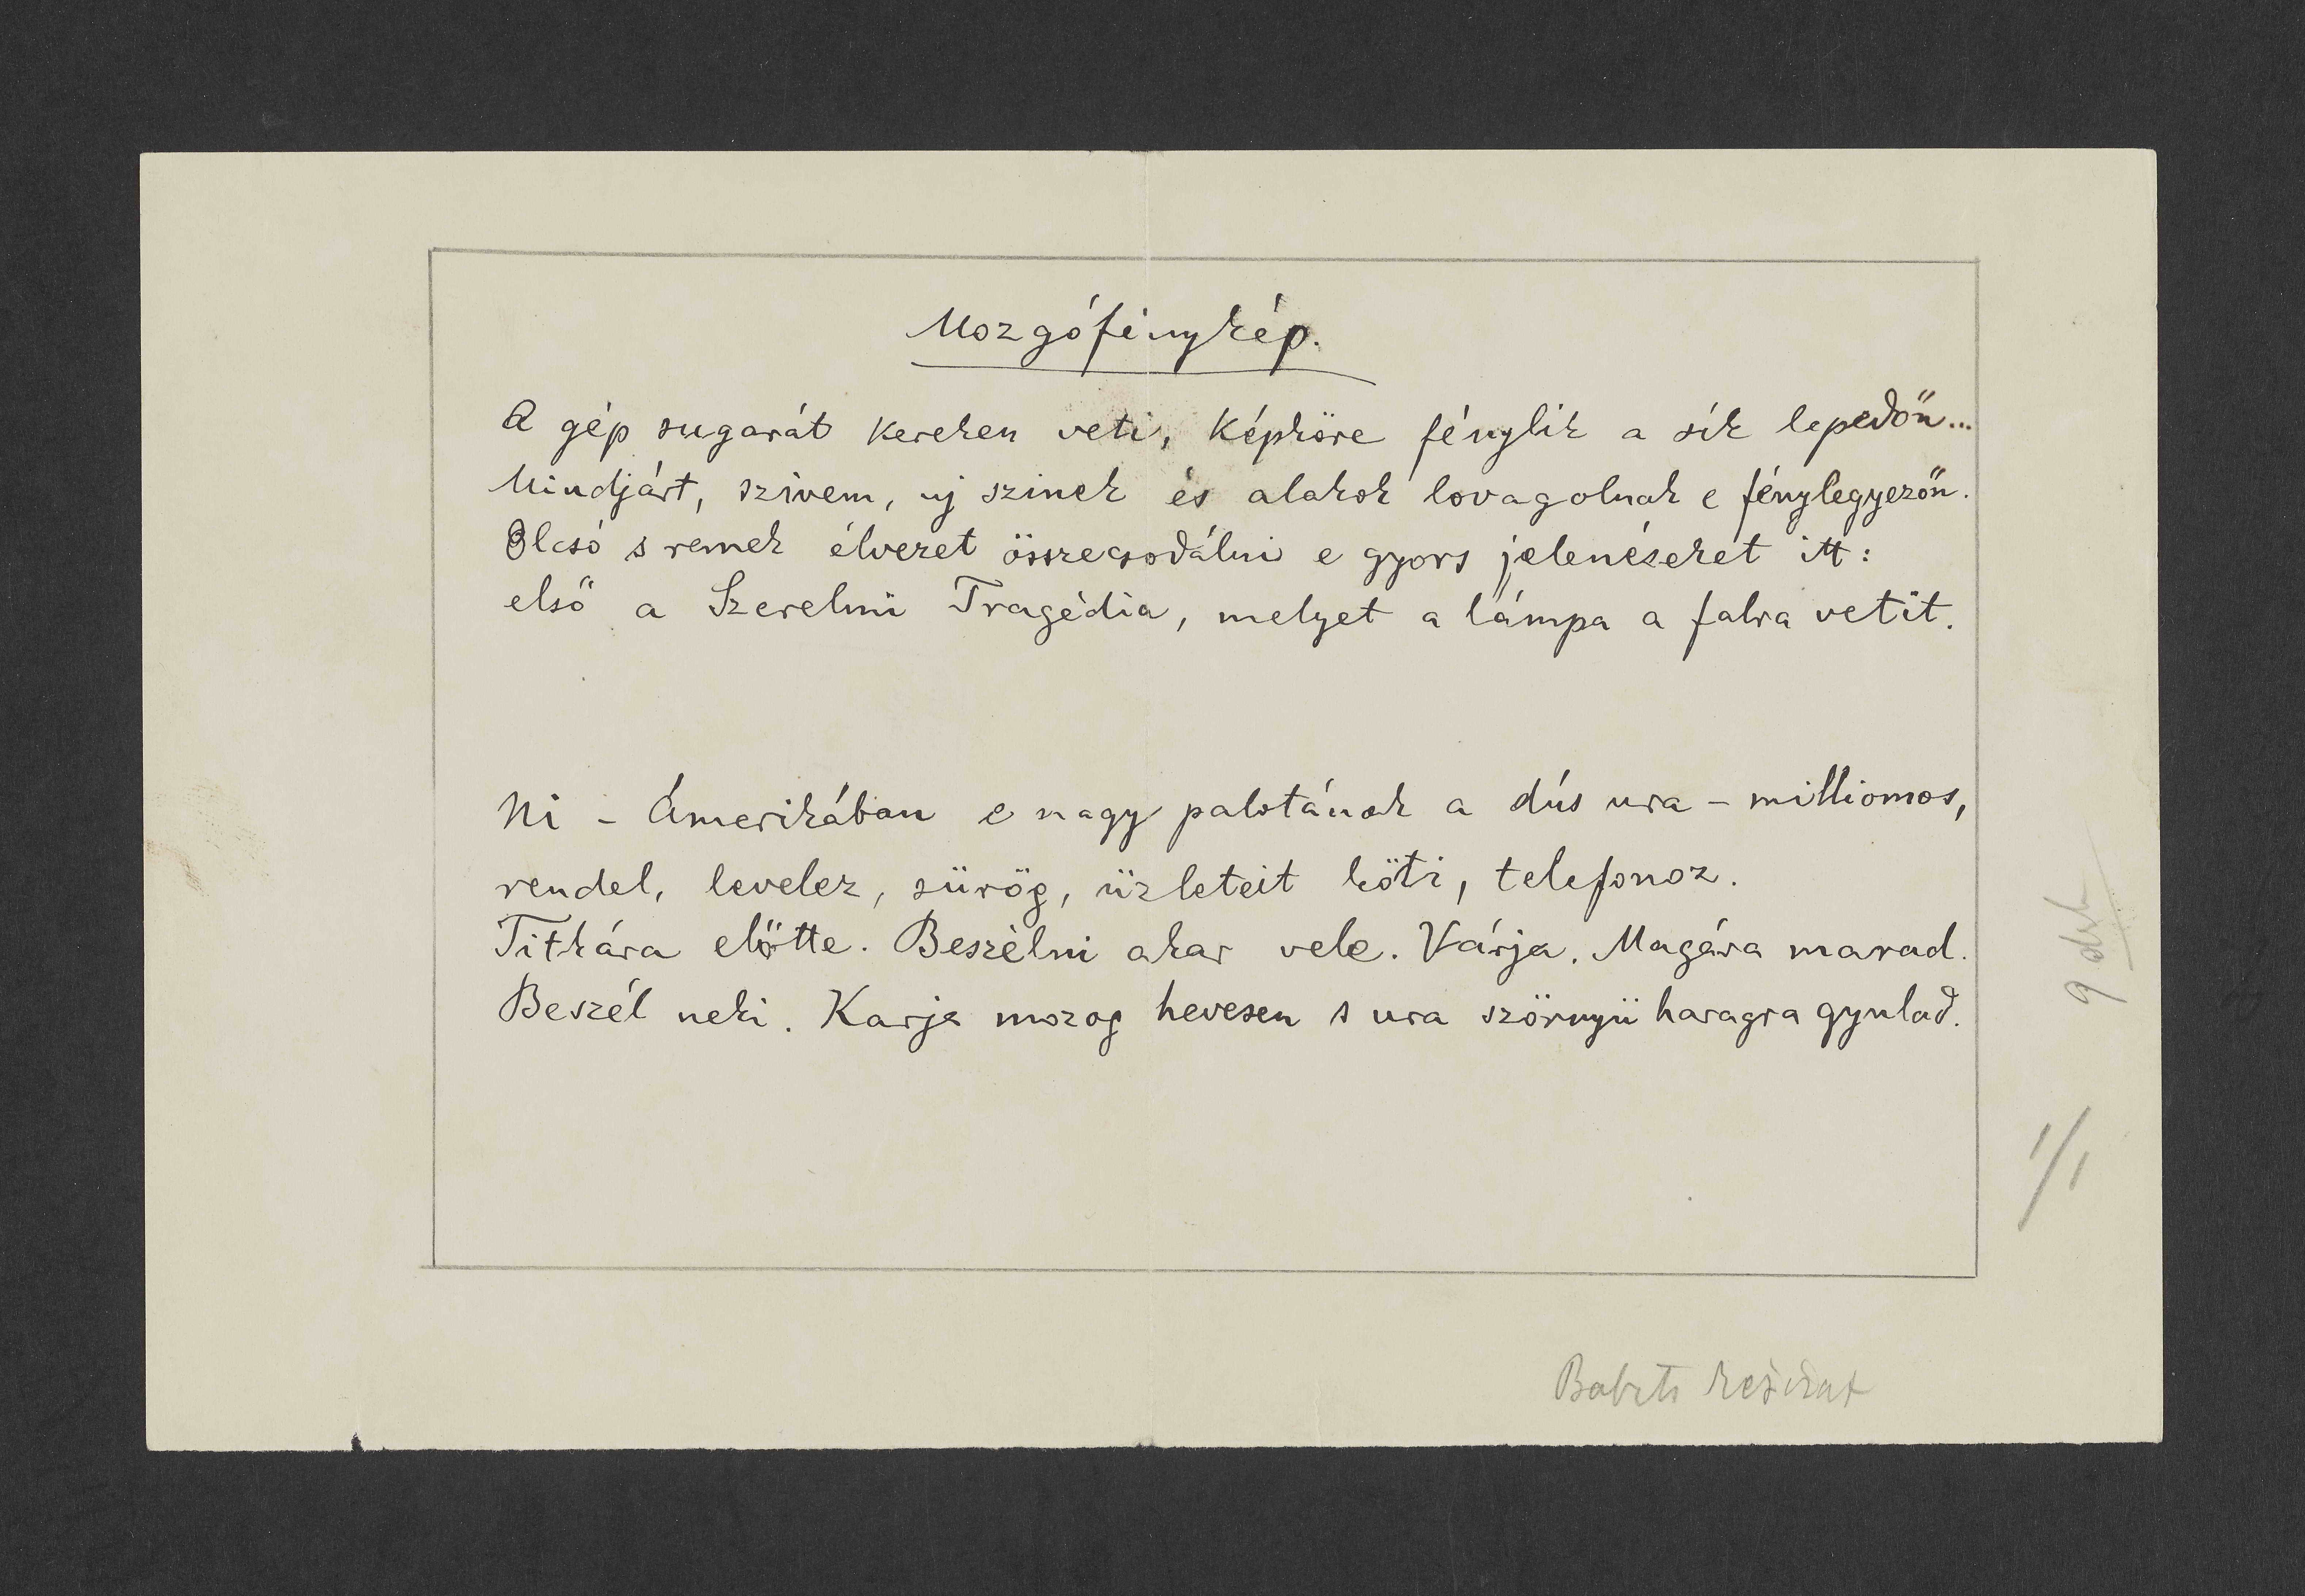 Mozgófénykép.
A gép sugarát kereken veti, képköre fénylik a sík lepedőn...
Mindjárt, szivem, uj szinek és alakok lovagolnak e fénylegyezőn.
Olcsó s remek élvezet összecsodálni e gyors jelenéseket itt:
első a Szerelmi Tragédia, melyet a lámpa a falra vetit.
Ni - Amerikában e nagy palotának a dús ura - milliomos,
rendel, levelez, sürög, üzleteit köti, telefonoz.
Titkára előtte. Beszélni akar vele. Várja. Magára marad.
Beszél neki. Karja mozog hevesen s ura szörnyü haragra gyulad.
9 drb
1/1
Babits kézirat